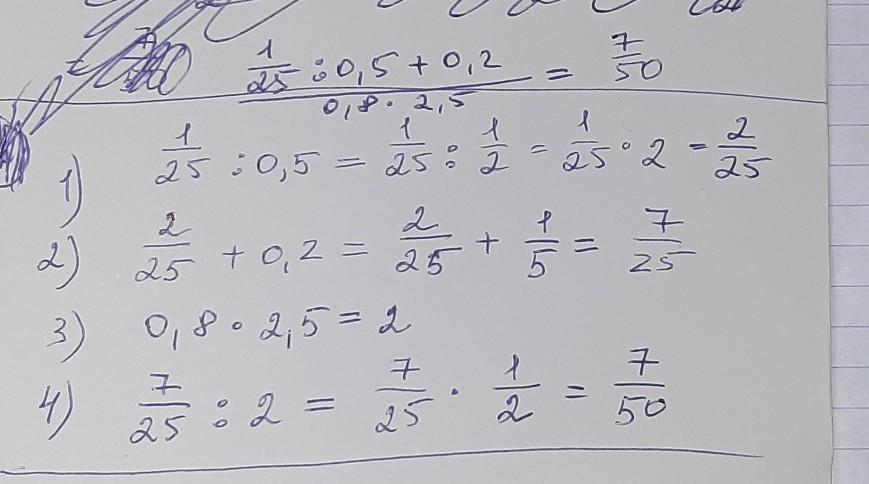 1/25 : 0,5 + 0,2 / 0,8 · 2,5 = 7/50
1) 1/25 : 0,5 = 1/25 : 1/2 = 1/25 · 2 = 2/25
2) 2/25 + 0,2 = 2/25 + 1/5 = 7/25
3) 0,8 · 2,5 = 2
4) 7/25 : 2 = 7/25 · 1/2 = 7/50